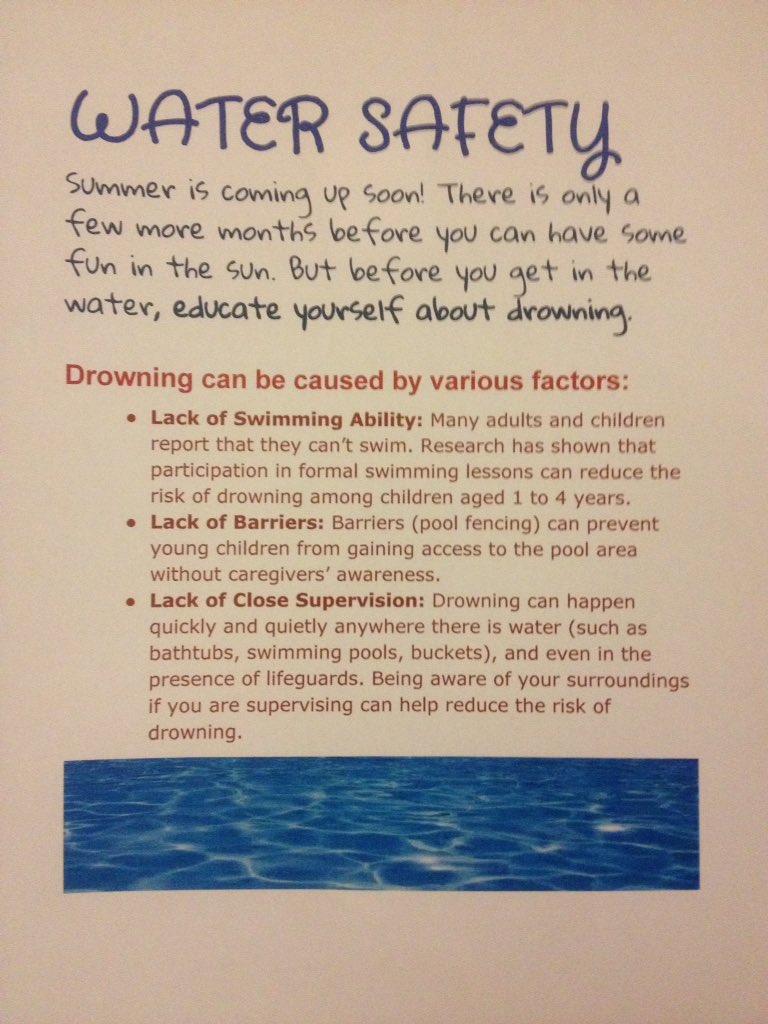 WATER SAFETY
Summer is coming up soon! There is only a
few more months before you can have some
fun in the sun. But before you get in the
water, educate yourself about drowning.
Drowning can be caused by various factors:
• Lack of Swimming Ability: Many adults and children
report that they can't swim. Research has shown that
participation in formal swimming lessons can reduce the
risk of drowning among children aged 1 to 4 years.
• Lack of Barriers: Barriers (pool fencing) can prevent
young children from gaining access to the pool area
without caregivers' awareness.
• Lack of Close Supervision: Drowning can happen
quickly and quietly anywhere there is water (such as
bathtubs, swimming pools, buckets), and even in the
presence of lifeguards. Being aware of your surroundings
if you are supervising can help reduce the risk of
drowning.